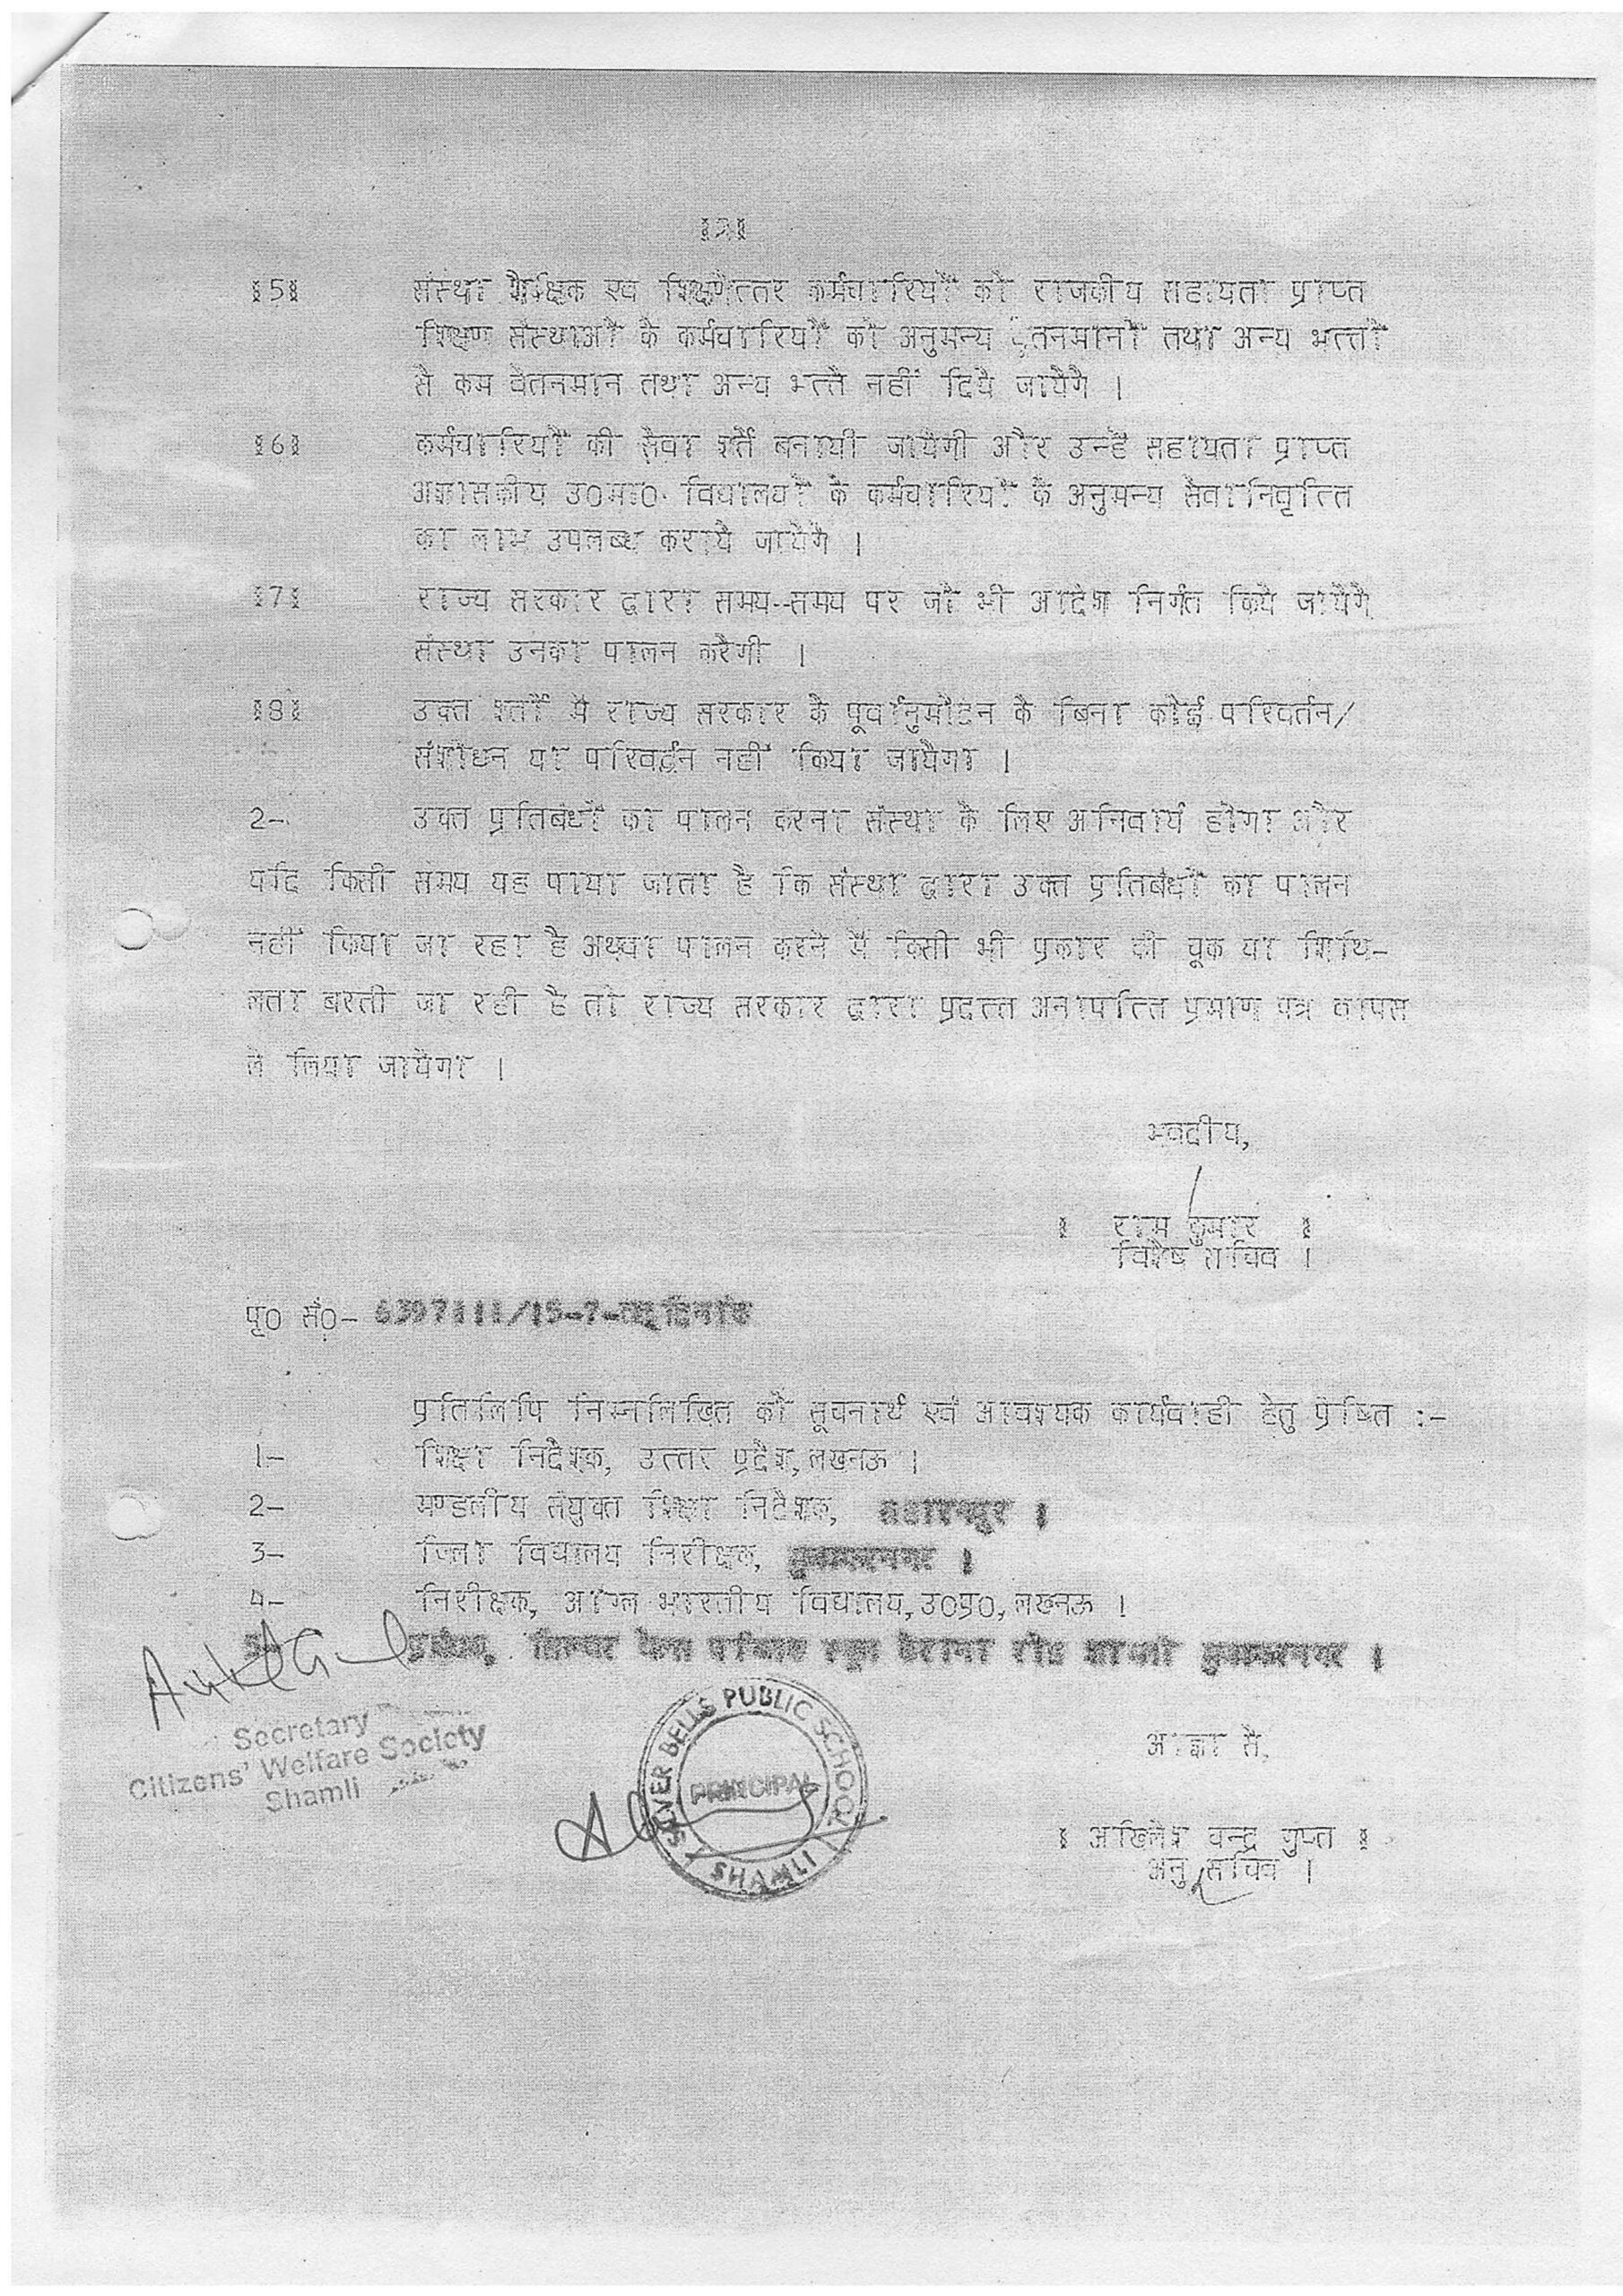 §2§
§5§ संस्था शैक्षिक एवं शिक्षणेत्तर कर्मचारियों को राजकीय सहायता प्राप्त
शिक्षण संस्थाओं के कर्मचारियों को अनुमन्य वेतनमानों तथा अन्य भत्तों
से कम वेतनमान तथा अन्य भत्ते नहीं दिये जायेंगे ।
§6§ कर्मचारियों की सेवा शर्तें बनायी जायेगी और उन्हें सहायता प्राप्त
अशासकीय उ0मा0 विद्यालयों के कर्मचारियों के अनुमन्य सेवानिवृत्ति
का लाभ उपलब्ध कराये जायेंगे ।
§7§ राज्य सरकार द्वारा समय-समय पर जो भी आदेश निर्गत किये जायेंगे
संस्था उनका पालन करेगी ।
§8§ उक्त शर्तों में राज्य सरकार के पूर्वानुमोदन के बिना कोई परिवर्तन/
संशोधन या परिवर्द्धन नहीं किया जायेगा ।
2- उक्त प्रतिबंधों का पालन करना संस्था के लिए अनिवार्य होगा और
यदि किसी समय यह पाया जाता है कि संस्था द्वारा उक्त प्रतिबंधों का पालन
नहीं किया जा रहा है अथवा पालन करने में किसी भी प्रकार की चूक या शिथि-
लता बरती जा रही है तो राज्य सरकार द्वारा प्रदत्त अनापत्ति प्रमाण पत्र वापस
ले लिया जायेगा ।
भवदीय,
§ राम कुमार §
विशेष सचिव ।
पृ0 सं0-
प्रतिलिपि निम्नलिखित को सूचनार्थ एवं आवश्यक कार्यवाही हेतु प्रेषित :-
1- शिक्षा निदेशक, उत्तर प्रदेश, लखनऊ ।
2- मण्डलीय संयुक्त शिक्षा निदेशक, सहारनपुर ।
3- जिला विद्यालय निरीक्षक, मुजफ्फरनगर ।
4- निरीक्षक, आंग्ल भारतीय विद्यालय, उ0प्र0, लखनऊ ।
प्रबंधक, सिल्वर बेल्स पब्लिक स्कूल कैराना रोड शामली मुजफ्फरनगर ।
Secretary
Citizens' Welfare Society
Shamli
SILVER BELLS PUBLIC SCHOOL
PRINCIPAL
SHAMLI
आज्ञा से,
§ अखिलेश चन्द्र गुप्त §
अनु सचिव ।